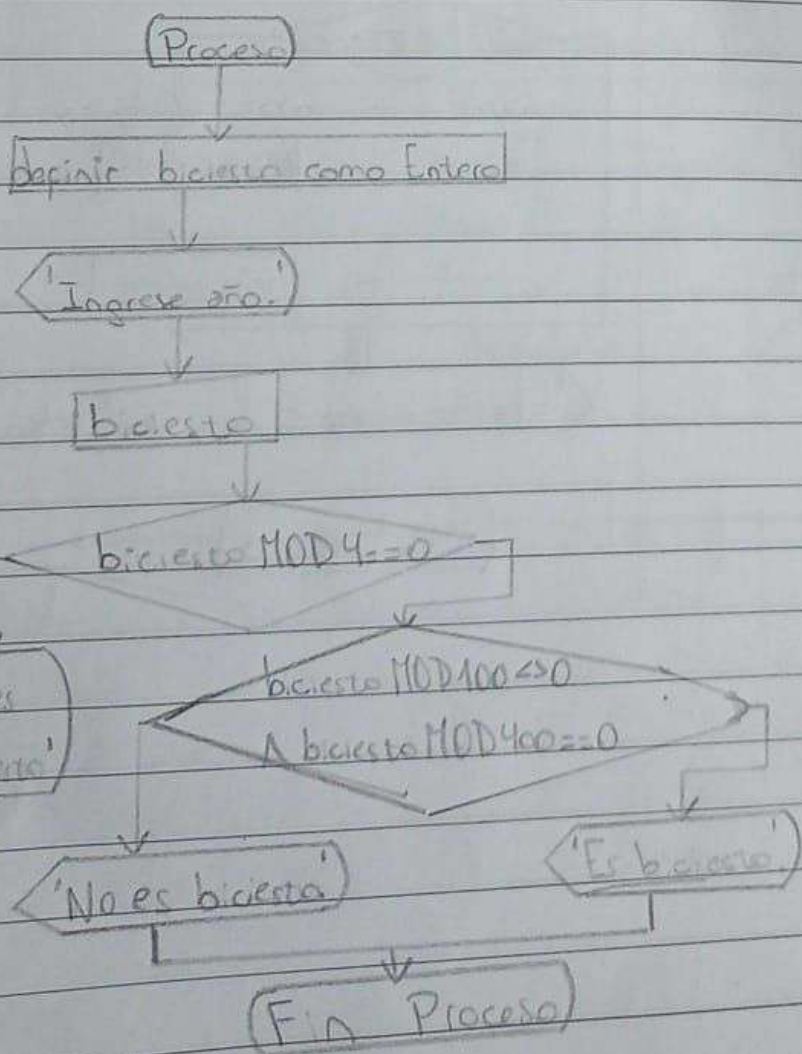 Proceso
Definir biciesto como Entero
'Ingrese año.'
biciesto
biciesto MOD 4==0
biciesto MOD 100 <> 0
Λ biciesto MOD 400==0
'No es biciesto'
'Es biciesto.'
Fin Proceso